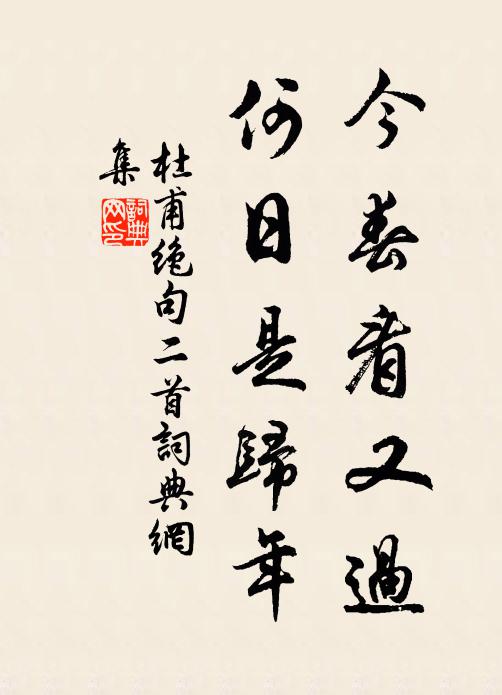 今春看又過
何日是歸年
杜甫絶句二首詞典網
集
詞典
网印